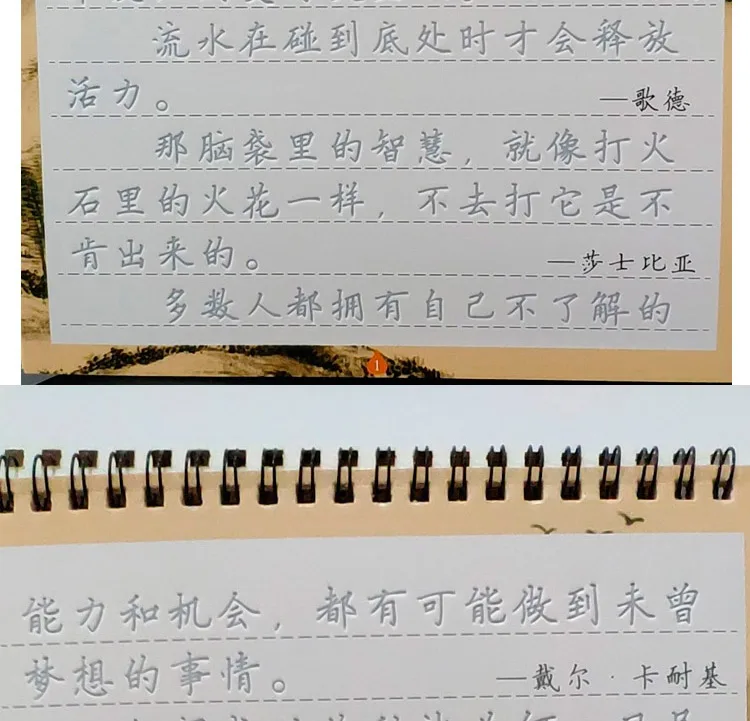 流水在碰到底处时才会释放
活力。 —歌德
那脑袋里的智慧，就像打火
石里的火花一样，不去打它是不
肯出来的。 —莎士比亚
多数人都拥有自己不了解的
1
能力和机会，都有可能做到未曾
梦想的事情。 —戴尔·卡耐基